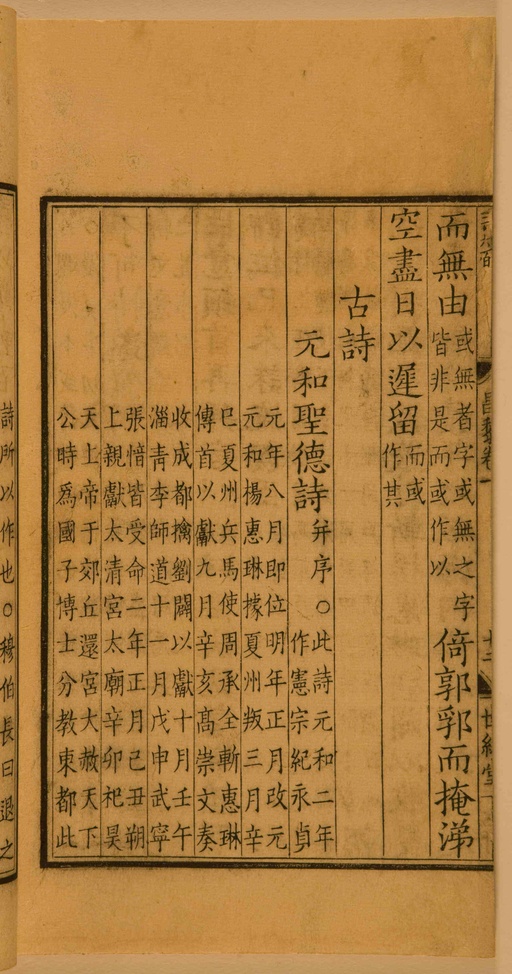 昌黎卷一
十二
世綵堂
而無由或無者字或無之字
皆非是而或作以
倚郭郛而掩涕
空盡日以遲留而或
作其
古詩
元和聖德詩并序○此詩元和二年
作憲宗紀永貞
元年八月即位明年正月改元
元和楊惠琳據夏州叛三月辛
巳夏州兵馬使周承全斬惠琳
傳首以獻九月辛亥髙崇文奏
收成都擒劉闢以獻十月壬午
淄青李師道十一月戊申武寧
張愔皆受命二年正月己丑朔
上親獻太清宮太廟辛卯祀昊
天上帝于郊丘還宮大赦天下
公時爲國子博士分教東都此
詩所以作也○穆伯長曰退之